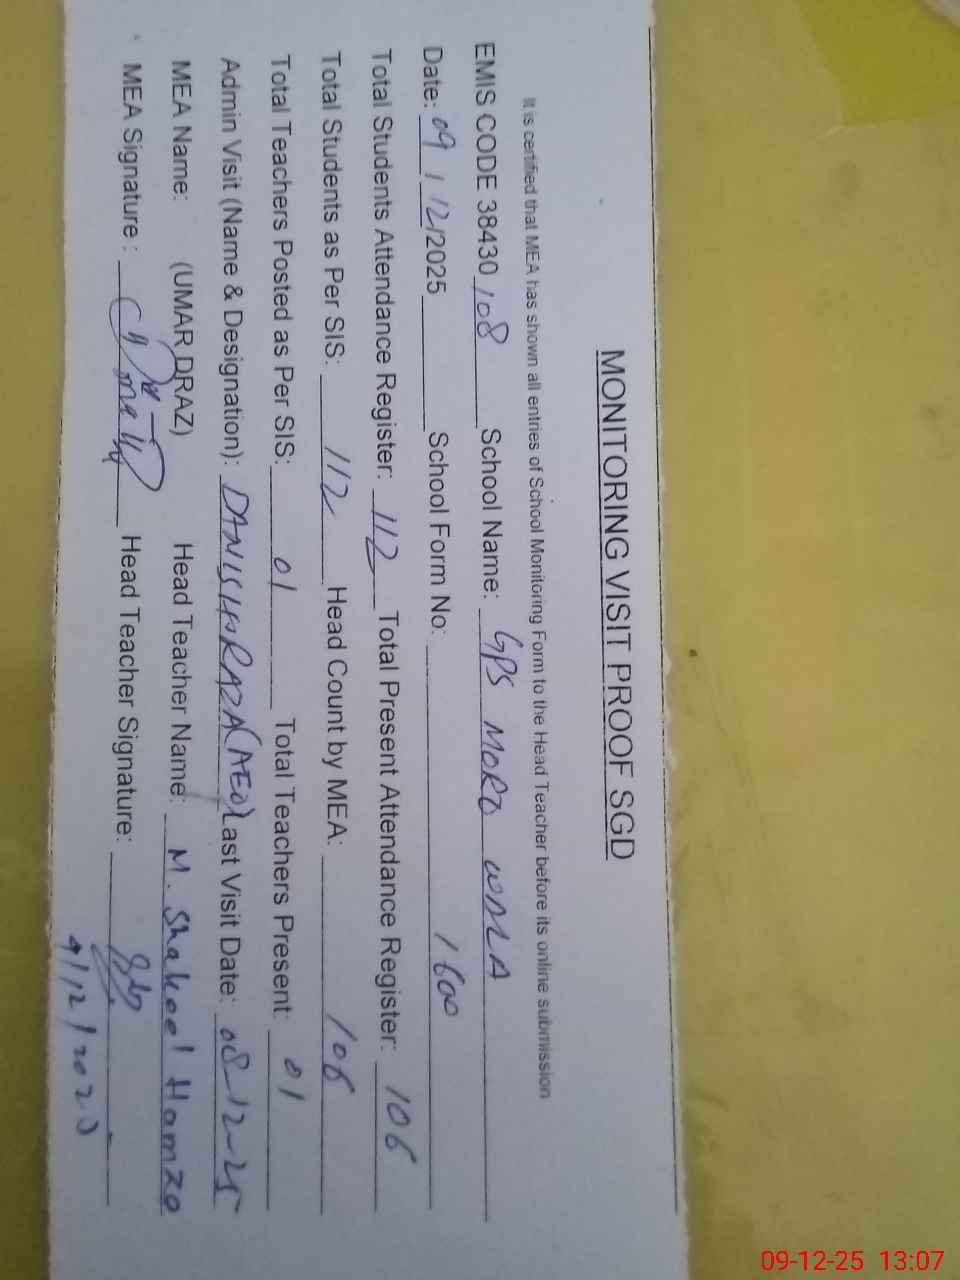 MONITORING VISIT PROOF SGD
It is certified that MEA has shown all entries of School Monitoring Form to the Head Teacher before its online submission
EMIS CODE 38430 108 School Name: GPS MORD WALA
Date: 09/12/2025 School Form No: 1600
Total Students Attendance Register: 112 Total Present Attendance Register: 106
Total Students as Per SIS: 112 Head Count by MEA: 106
Total Teachers Posted as Per SIS: 01 Total Teachers Present: 01
Admin Visit (Name & Designation): DANISH RAZA (AEO) Last Visit Date: 08-12-25
MEA Name: (UMAR DRAZ) Head Teacher Name: M. Shakeel Hamza
MEA Signature : Head Teacher Signature:
9/12/2025
09-12-25 13:07